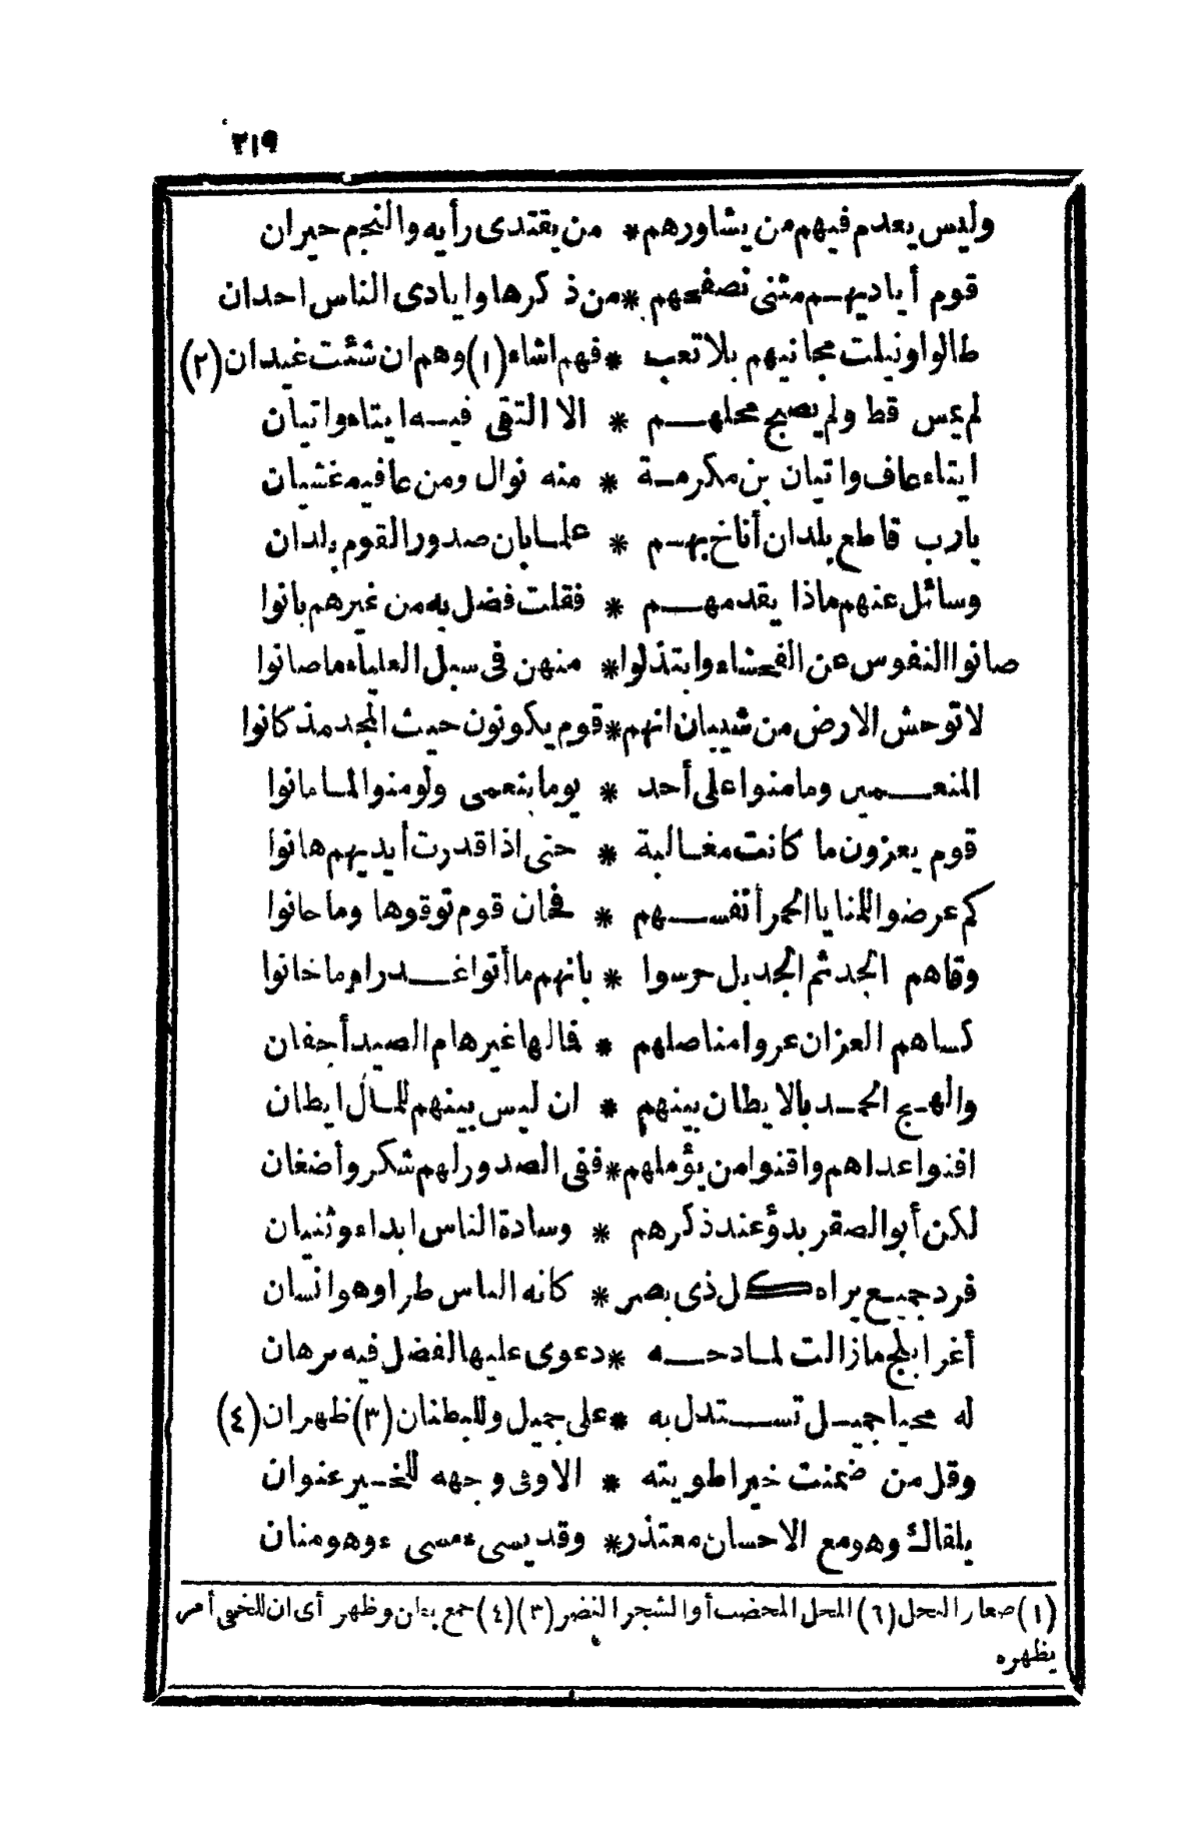 ٢١٩
وليس يعدم فيهم من يشاورهم * من يقتدى رأيه والنجم حيران
قوم أياديهم مثنى تصفحهم * من ذكرها وايادى الناس احدان
طالوا ونيلت مجانيهم بلا تعب * فهم اشاء (١) وهم ان شئت غيدان (٢)
لم يمس قط ولم يصبح محلهم * الا التقى فيه ايتاء واتيان
ايتاء عاف واتيان بن مكرمة * منه نوال ومن عافيه غشيان
يارب قاطع بلدان أناخ بهم * علما بان صدور القوم بلدان
وسائل عنهم ماذا يقدمهم * فقلت فضل به من غيرهم بانوا
صانوا النفوس عن الفحشاء وابتذلوا * منهن فى سبل العلياء ما صانوا
لا توحش الارض من شيبان انهم * قوم يكونون حيث المجد مذ كانوا
المنعمين وما منوا على أحد * يوما بنعمى ولو منوا لما مانوا
قوم يعزون ما كانت مغالبة * حتى اذا قدرت أيديهم هانوا
كم عرضوا للمنايا الحمر أنفسهم * فحان قوم توقوها وما حانوا
وقاهم الجد ثم الجد بل حرسوا * بانهم ما أتوا غدرا وما خانوا
كساهم العز ان عروا مناصلهم * فما لها غير هام الصيد أجفان
والهج الحمد بالايطان بينهم * ان ليس بينهم للمال ايطان
افنوا عداهم واقنوا من يؤملهم * ففى الصدور لهم شكر وأضغان
لكن أبو الصقر بدؤ عند ذكرهم * وسادة الناس ابداء وثنيان
فرد جميع يراه كل ذى بصر * كانه الناس طرا وهو انسان
أغر ابلج مازالت لمادحه * دعوى عليها الفضل فيه برهان
له محيا جميل تستدل به * على جميل وللبطنان (٣) ظهران (٤)
وقل من ضمنت خيرا طويته * الا وفى وجهه للخير عنوان
يلقاك وهو مع الاحسان معتذر * وقد يسى ءمسى ءوهو منان
(١) صغار النخل (٢) النخل المخضب أو الشجر النضر (٣) (٤) جمع بطن وظهر أى ان للخفى أمر
يظهره